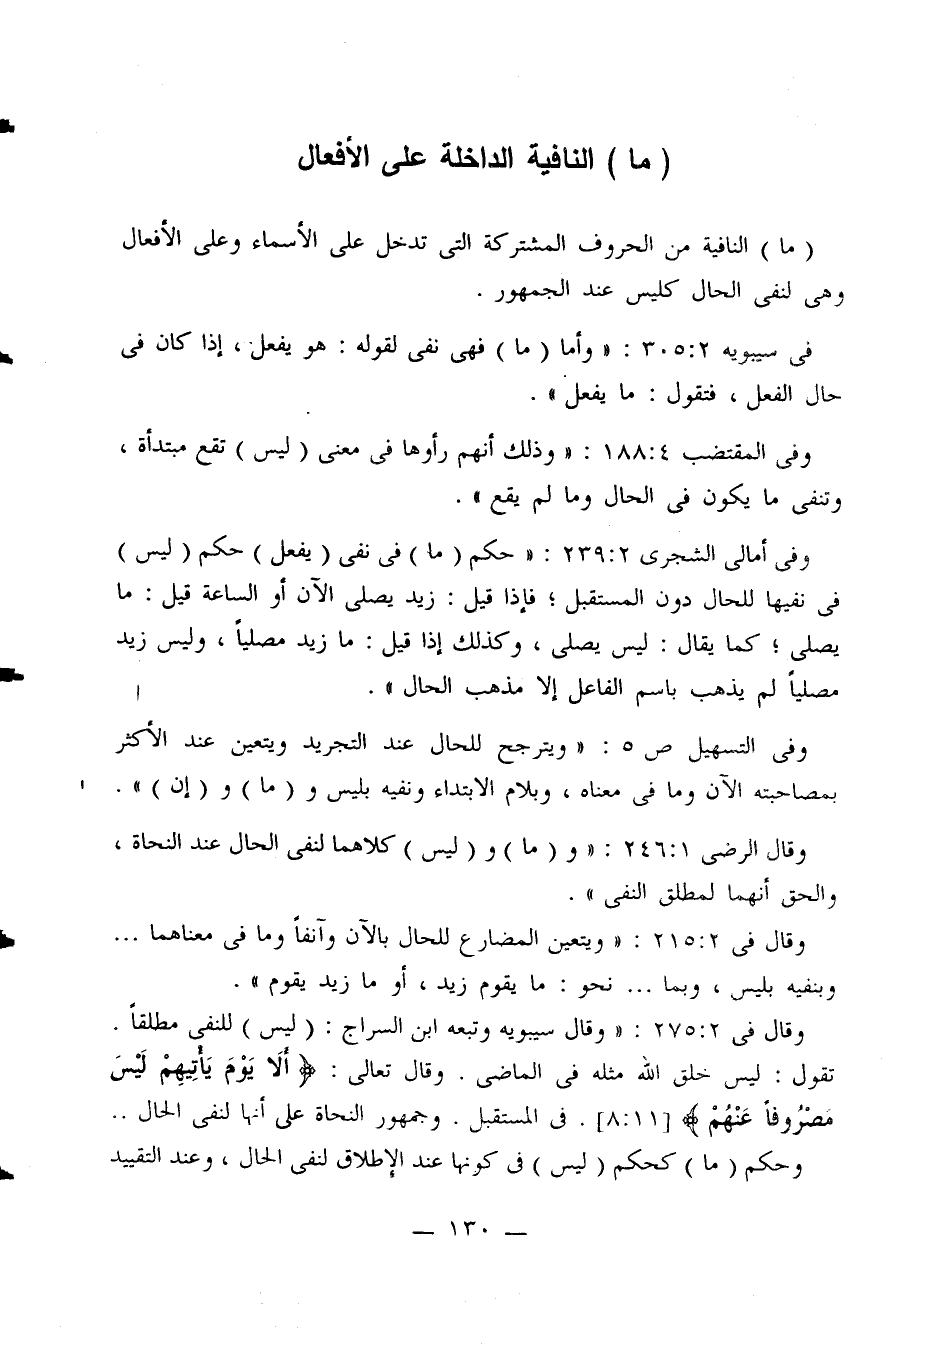 ( ما ) النافية الداخلة على الأفعال
( ما ) النافية من الحروف المشتركة التى تدخل على الأسماء وعلى الأفعال
وهى لنفى الحال كليس عند الجمهور .
فى سيبويه ٣٠٥:٢ : « وأما ( ما ) فهى نفى لقوله : هو يفعل ، إذا كان فى
حال الفعل ، فتقول : ما يفعل » .
وفى المقتضب ١٨٨:٤ : « وذلك أنهم رأوها فى معنى ( ليس ) تقع مبتدأة ،
وتنفى ما يكون فى الحال وما لم يقع » .
وفى أمالى الشجرى ٢٣٩:٢ : « حكم ( ما ) فى نفى ( يفعل ) حكم ( ليس )
فى نفيها للحال دون المستقبل ؛ فإذا قيل : زيد يصلى الآن أو الساعة قيل : ما
يصلى ؛ كما يقال : ليس يصلى ، وكذلك إذا قيل : ما زيد مصلياً ، وليس زيد
مصلياً لم يذهب باسم الفاعل إلا مذهب الحال » .
وفى التسهيل ص ٥ : « ويترجح للحال عند التجريد ويتعين عند الأكثر
بمصاحبته الآن وما فى معناه ، وبلام الابتداء ونفيه بليس و ( ما ) و ( إن ) » .
وقال الرضى ٢٤٦:١ : « و ( ما ) و ( ليس ) كلاهما لنفى الحال عند النحاة ،
والحق أنهما لمطلق النفى » .
وقال فى ٢١٥:٢ : « ويتعين المضارع للحال بالآن وآنفاً وما فى معناهما ...
وبنفيه بليس ، وبما ... نحو : ما يقوم زيد ، أو ما زيد يقوم » .
وقال فى ٢٧٥:٢ : « وقال سيبويه وتبعه ابن السراج : ( ليس ) للنفى مطلقاً .
تقول : ليس خلق الله مثله فى الماضى . وقال تعالى : ﴿ أَلَا يَوْمَ يَأْتِيهِمْ لَيْسَ
مَصْرُوفاً عَنْهُمْ ﴾ [٨:١١] . فى المستقبل . وجمهور النحاة على أنها لنفى الحال ..
وحكم ( ما ) كحكم ( ليس ) فى كونها عند الإطلاق لنفى الحال ، وعند التقييد
— ١٣٠ —